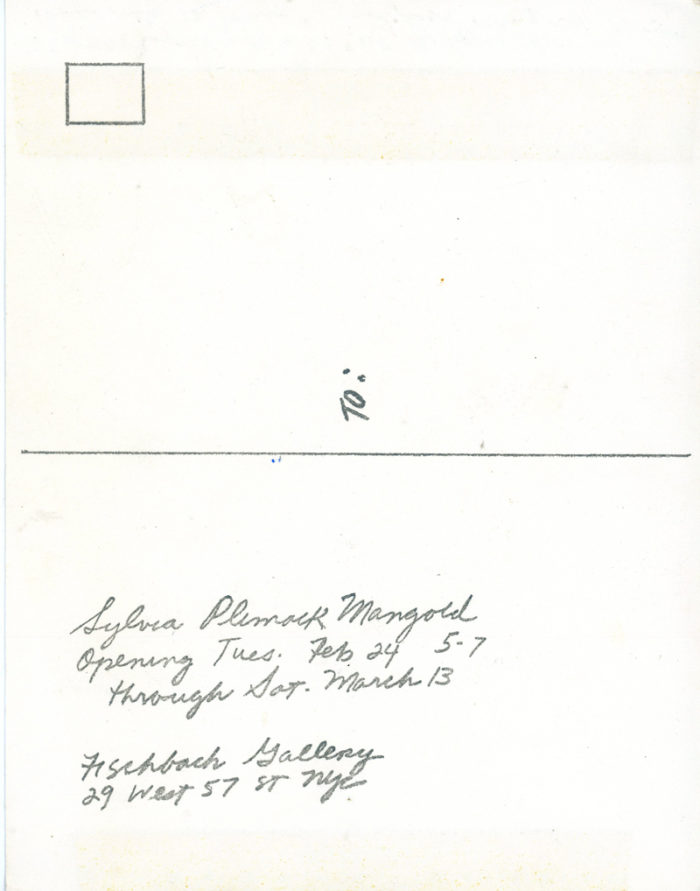 TO:
Sylvia Plimack Mangold
Opening Tues. Feb 24 5-7
through Sat. March 13
Fischbach Gallery
29 West 57 St NYC